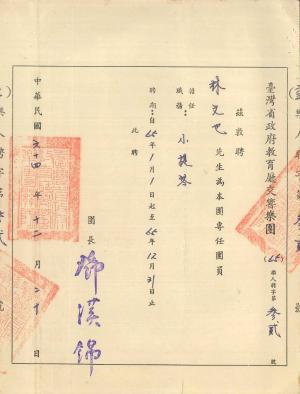 臺灣省政府教育廳交響樂團
(65)樂人聘字第參貳號
茲敦聘
先生為本團專任團員
擔任
職務：小提琴
聘期：自65年1月1日起至65年12月31日止
此聘
團長 鄧漢錦
中華民國六十四年十二月二十日